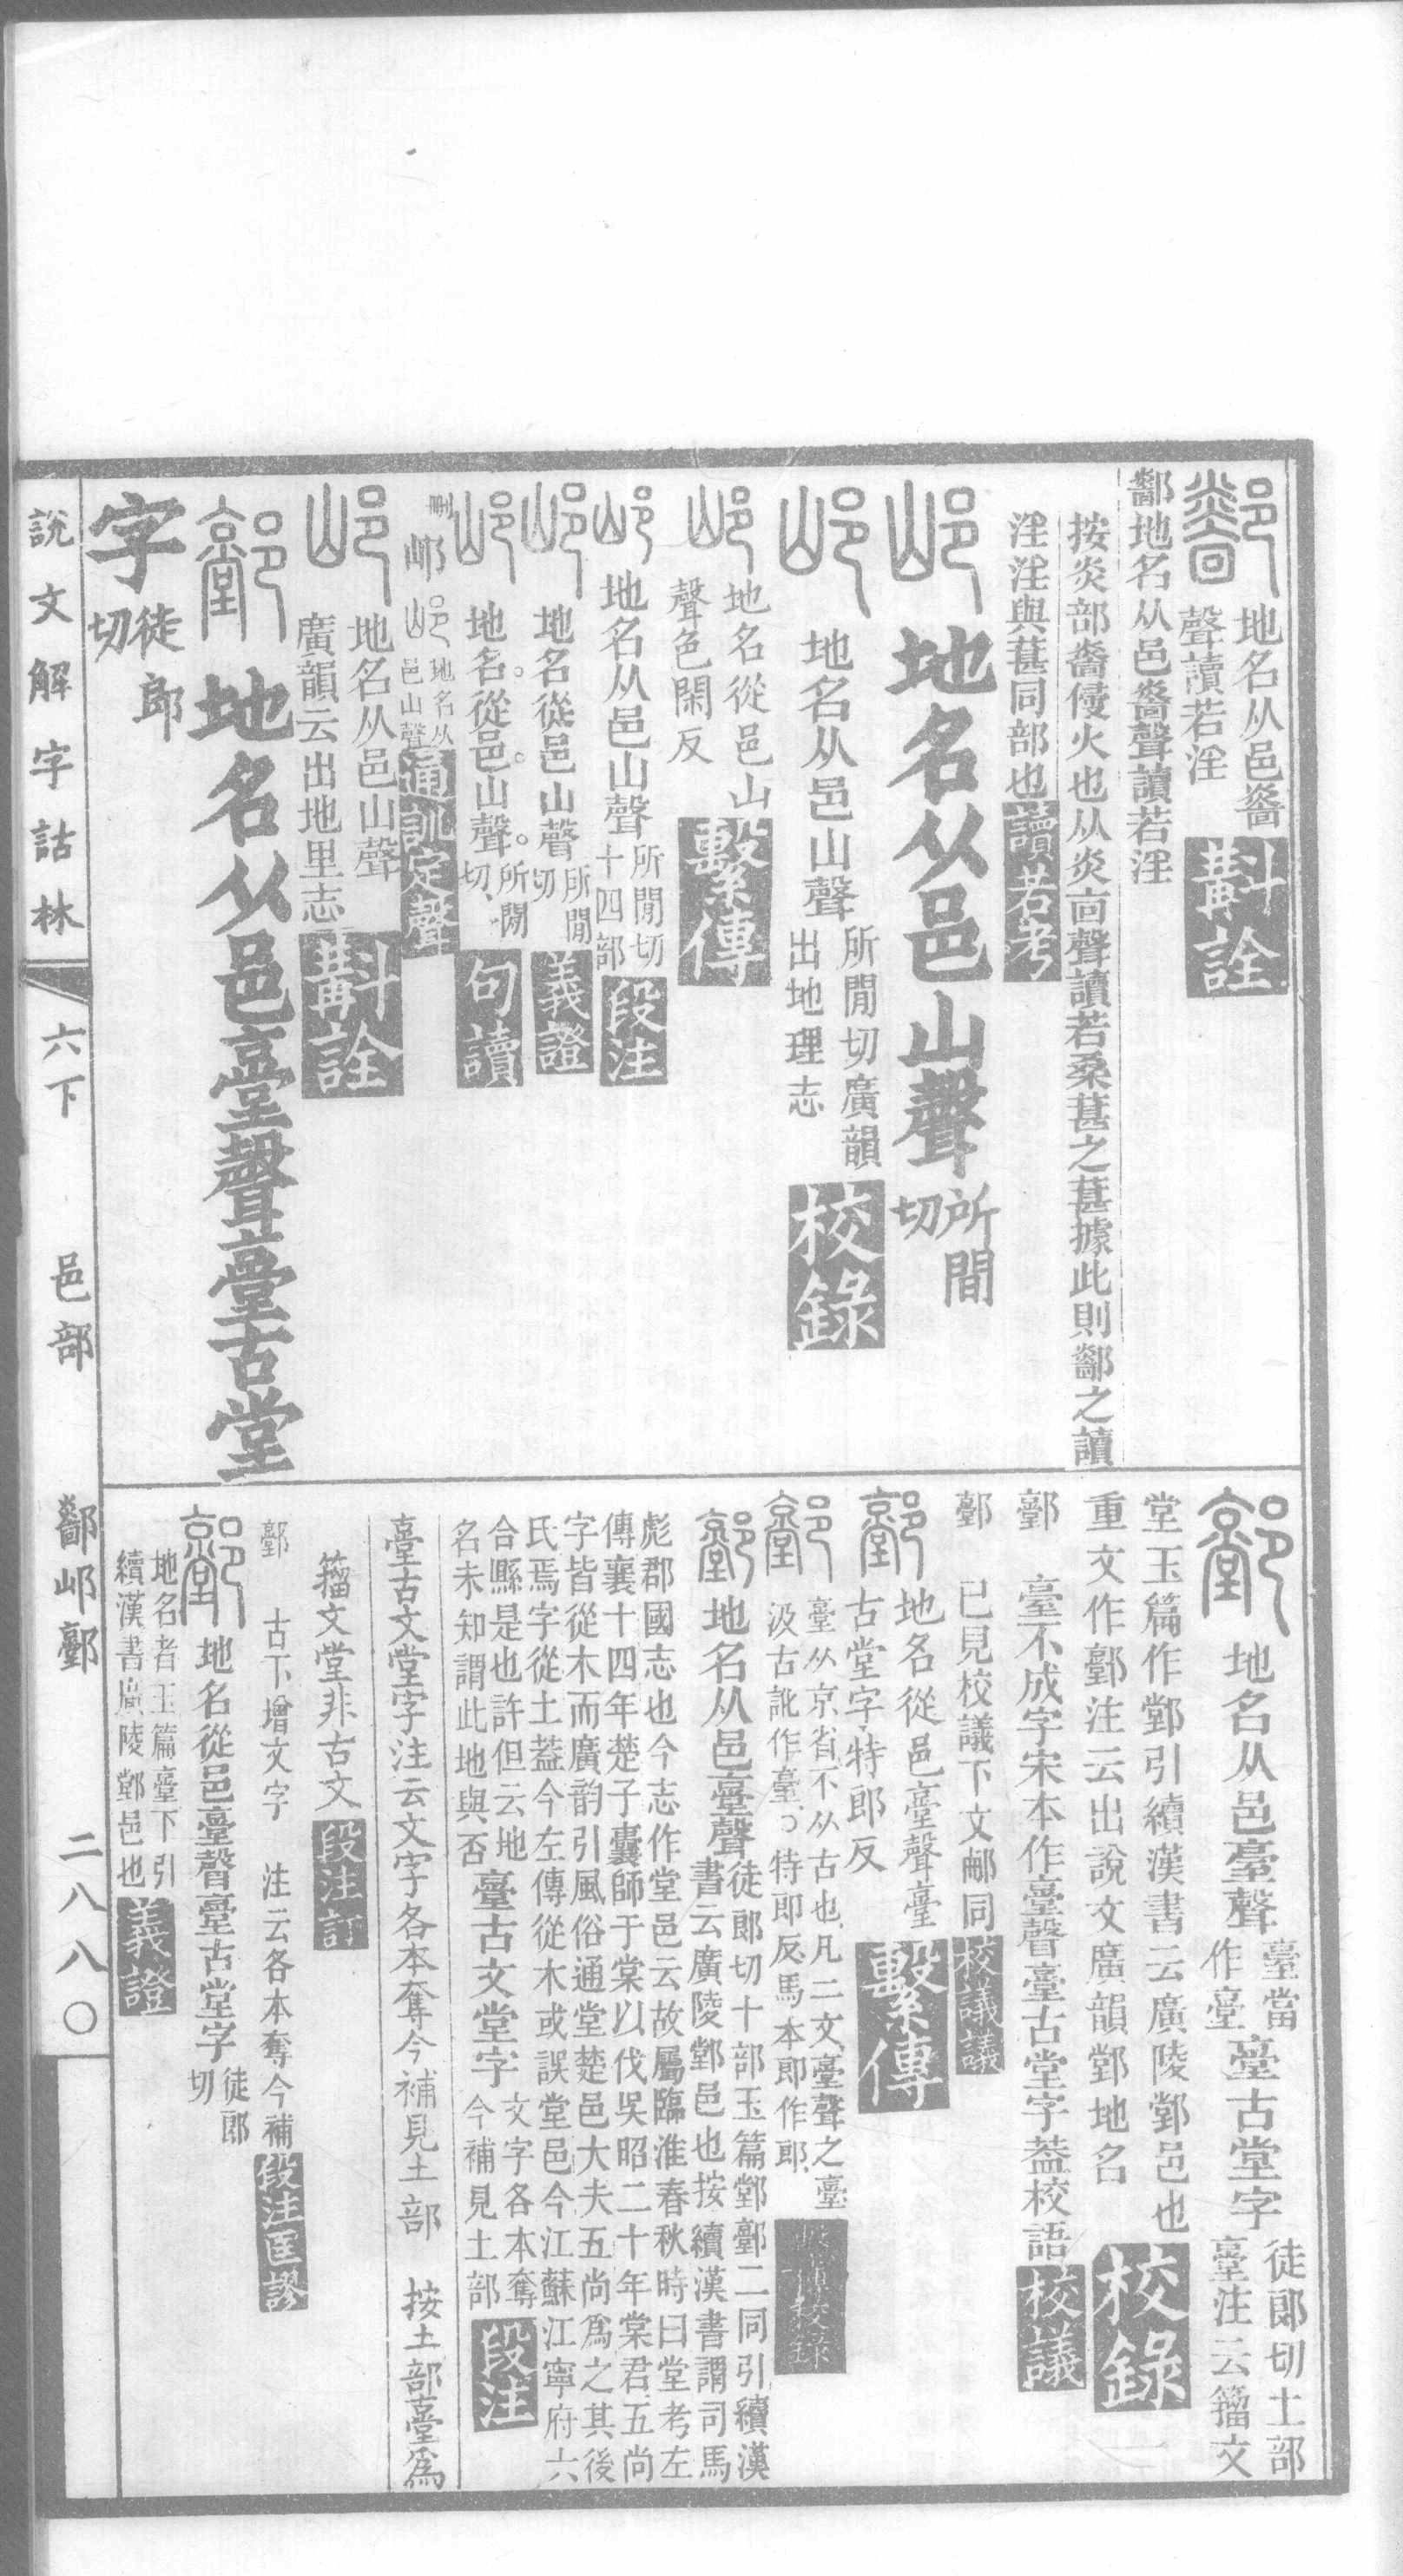 地名从邑𤑔
聲讀若淫
斠詮
鄐地名从邑𤑔聲讀若淫
按炎部𤑔侵火也从炎㐭聲讀若桑葚之葚據此則𨞺之讀
淫淫與葚同部也讀若考
地名从邑山聲所間切
地名从邑山聲所閒切廣韻
出地理志
校錄
地名從邑山
聲色閑反
繫傳
地名从邑山聲所閒切
十四部
段注
地名從邑山聲所閒切
義證
地名。從邑。山聲。所閑切、
句讀
刪邖地名从
邑山聲
通訓定聲
地名从邑山聲
廣韻云出地里志
斠詮
地名从邑臺聲臺古堂
字徒郎切
說文解字詁林
六下
邑部
二八八〇
地名从邑臺聲臺當
作臺臺古堂字徒郎切土部
臺注云籀文
堂玉篇作鄼引續漢書云廣陵鄼邑也
重文作鄼注云出說文廣韻鄼地名
校錄
臺不成字宋本作臺聲臺古堂字葢校語校議
已見校議下文郙同校議議
地名從邑臺聲臺
古堂字特郎反
繫傳
臺从京省不从古也凡二文臺聲之臺
汲古訛作臺。特郎反馬本郎作郎
繫傳校錄
地名从邑臺聲徒郎切十部玉篇二同引續漢
書云廣陵邑也按續漢書謂司馬
彪郡國志也今志作堂邑云故屬臨淮春秋時曰堂考左
傳襄十四年楚子囊師于棠以伐吳昭二十年棠君五尚
字皆從木而廣韵引風俗通堂楚邑大夫五尚爲之其後
氏焉字從土葢今左傳從木或誤堂邑今江蘇江寧府六
合縣是也許但云地
名未知謂此地與否
臺古文堂字文字各本奪
今補見土部
段注
臺古文堂字注云文字各本奪今補見土部 按土部臺爲
籀文堂非古文段注訂
古下增文字 注云各本奪今補段注匡謬
地名從邑臺聲臺古堂字徒郎切
地名者玉篇臺下引
續漢書廣陵邑也
義證